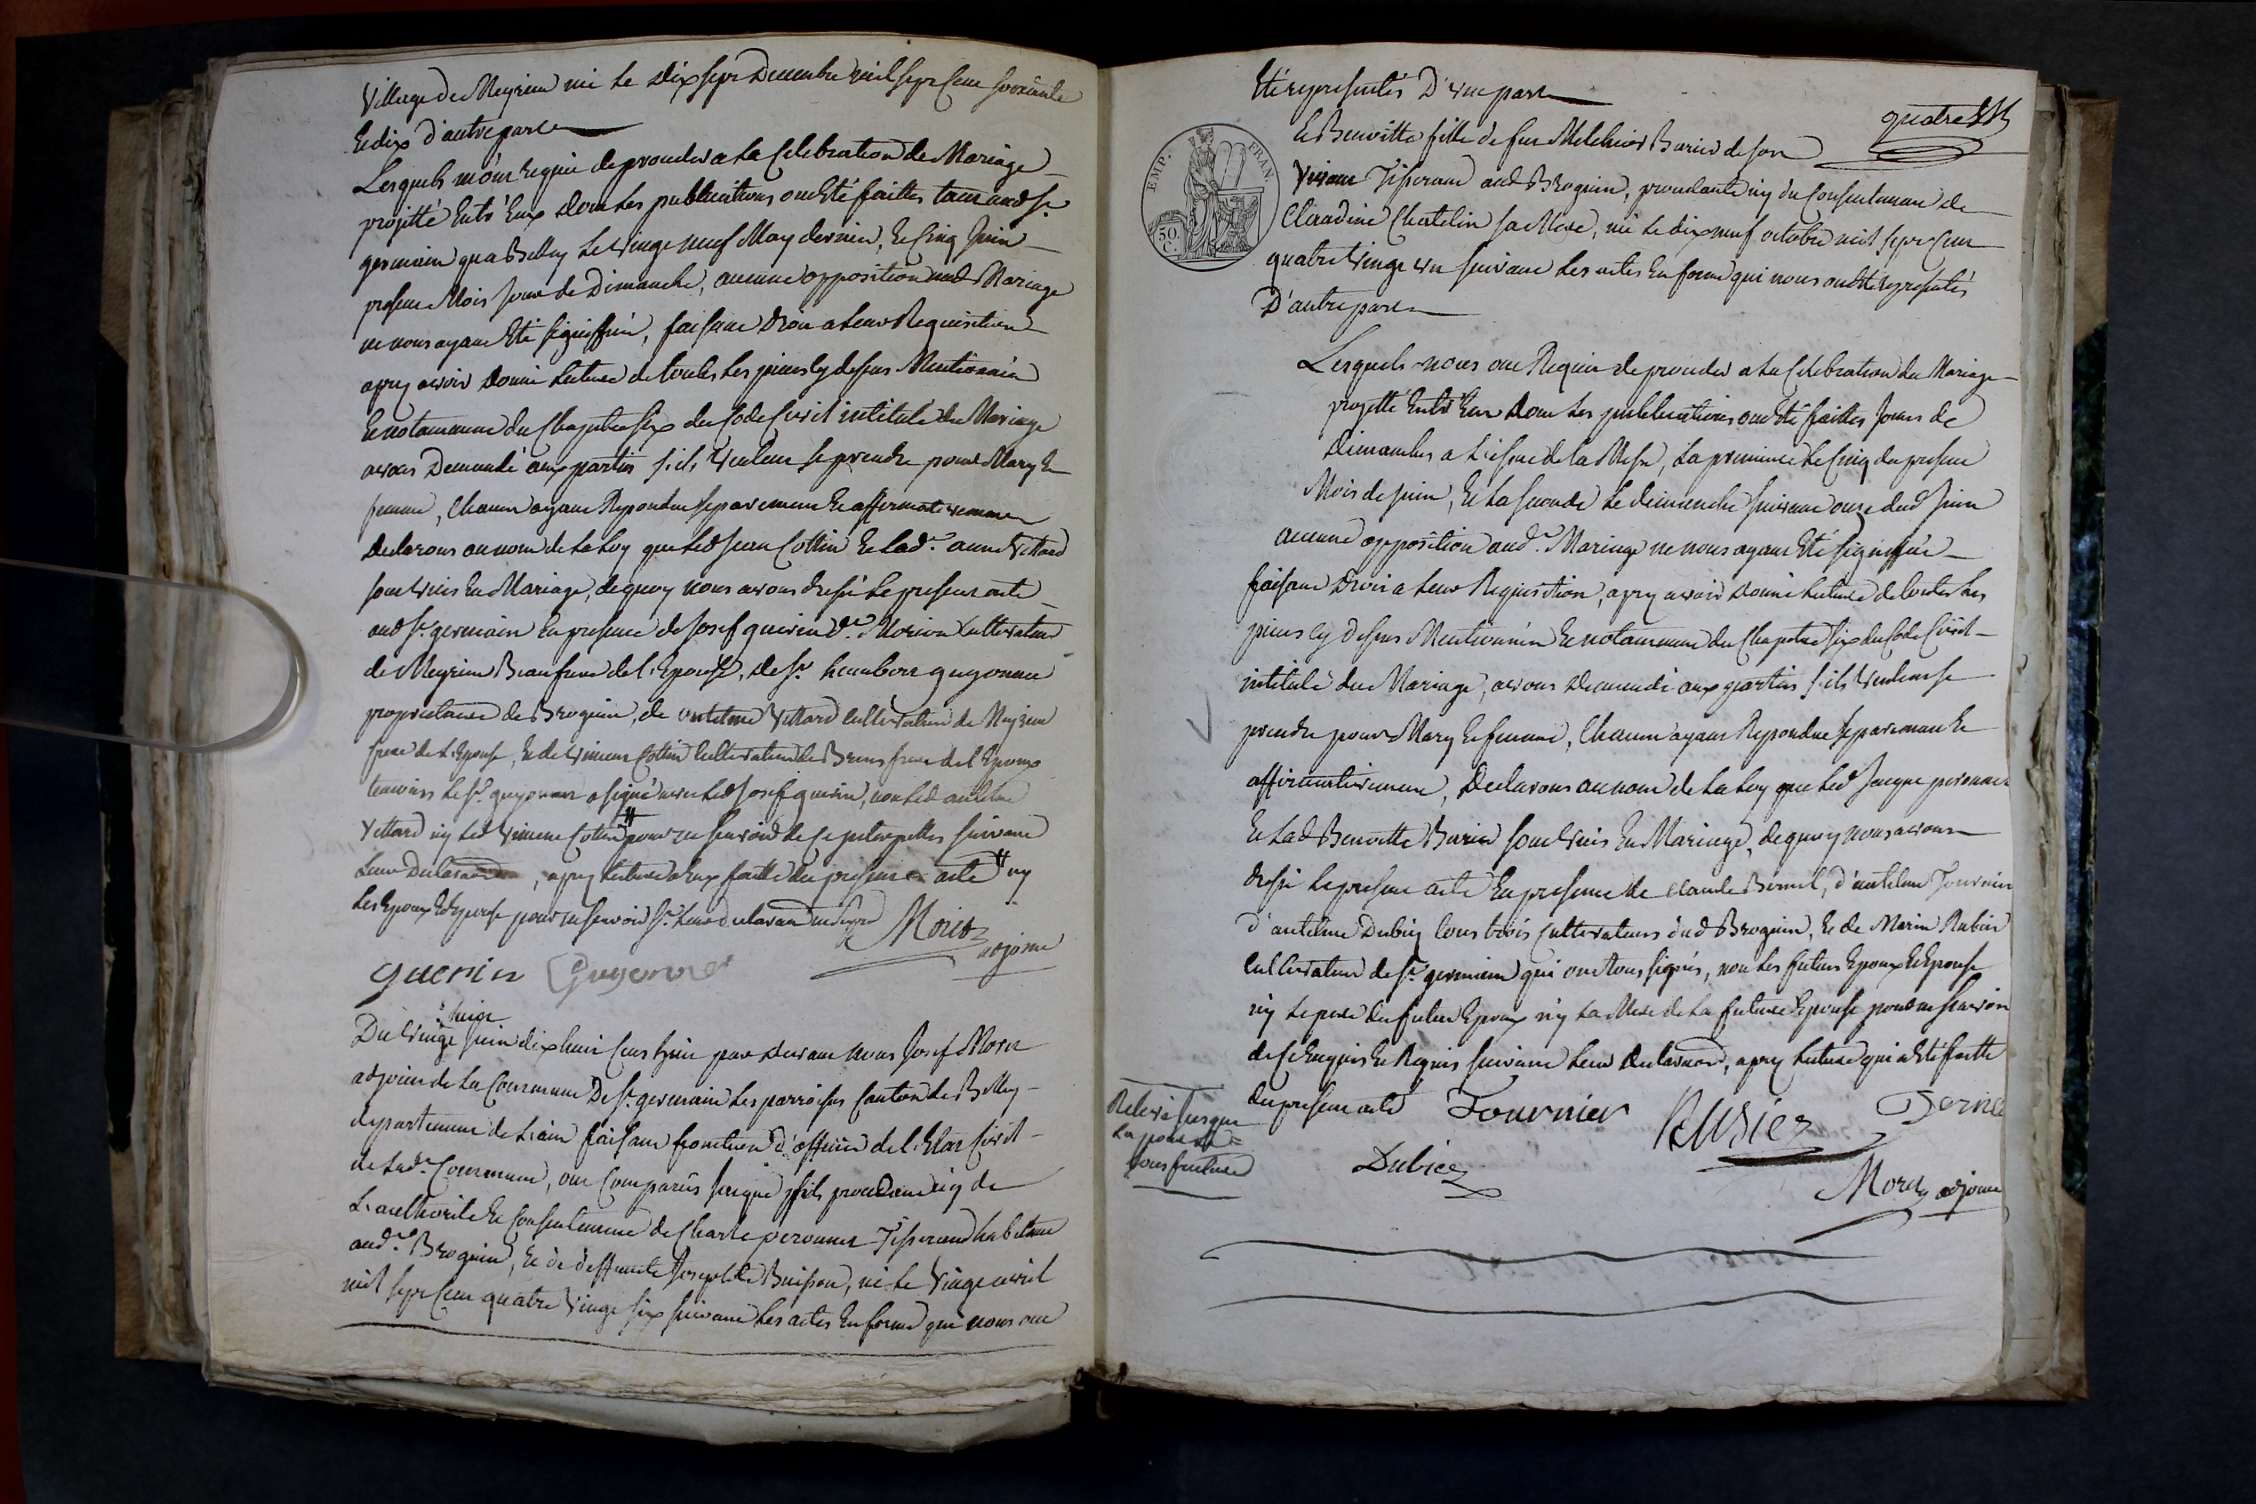 village de Meyrieu né le dix sept Decembre mil sept cent soixante
Et dix d'autre part
Lesquels m'ont requis de proceder a la Celebration de Mariage
projetté Entr'Eux dont les publications ont Eté faittes tant aud St
germain qua Belley le vingt neuf May dernier, Et Cinq Juin
present Mois jour de Dimanche, aucune opposition aud Mariage
ne nous ayant Eté signiffiée, faisant droit a leur Requisition
apres avoir donné lecture de toutes les pieces Cy dessus Mentionnées
Et notamment du Chapitre Six du Code Civil intitulé du Mariage
avons Demandé aux parties s'ils veulent se prendre pour Mary Et
femme, Chacun ayant Repondu separement Et affirmativement
Declarons au nom de la Loy que led Jean Cottin Et lad.e anne Vettard
sont unis En Mariage, de quoy nous avons dressé le present acte
aud St germain En presence de Josef guerin d.t Morion Cultivateur
de Meyrieu Beaufrere de l'Epouse, de Sr guyonnet
proprietaire de Brognin, de antelme Vettard Cultivateur de Meyrieu
frere de L'Epouse, Et de vincent Cottin Cultivateur de Brens frere de l'Epoux
temoins le Sr guyonnet a signé avec led Josef guerin, non led antelme
Vettard ny led vincent Cottin # pour ne sçavoir de Ce interpellés suivant
Leur Declaration, apres lecture a Eux faitte du present acte # ny
les Epoux Et Epouse pour ne sçavoir St Leur declaration
Morel
adjoint
guerin Guyonnet
seize
Du vingt Juin dix huit Cent huit par Devant nous Josef Morel
adjoint de La Commune De St germain les parroisses Canton de Belley
departement de L'ain faisant fonction d'officier de l'Etat Civil
de lad.e Commune, ont Comparus Jacque fils procedant icy de
L'authorité Et Consentement de Charle peronnet Tisserand habitant
aud.t Brognin, Et de deffuncte Josephte Buisson, né le Vingt avril
mil sept Cent quatre vingt six suivant les actes En forme qui nous ont
quatre
Eté representés D'une part
Et Benoitte fille de feu Melchior Burier de son
Vivant Tisserand aud Brognin, procedante icy du Consentement de
Claudine Chatelin sa Mere, née le dix neuf octobre mil sept Cent
quatre vingt un suivant les actes En forme qui nous ont Eté representés
D'autre part
EMP. FRAN.
50. C.
Lesquels nous ont Requis de proceder a la Celebration du Mariage
projetté Entr'Eux dont les publications ont Eté faittes jours de
Dimanches a L'issue de la Messe, la premiere le Cinq du present
Mois de juin, Et la seconde le dimanche suivant onze dud Juin
aucune opposition aud.t Mariage ne nous ayant Eté signiffiée
faisant droit a leur Requisition, apres avoir donné lecture de toutes les
pieces Cy dessus Mentionnées Et notamment du Chapitre six du Code Civil
intitulé du Mariage, avons demandé aux parties s'ils veulent se
prendre pour Mary Et femme, Chacun ayant Repondu separement Et
affirmativement, Declarons au nom de la Loy que led Jacque peronnet
Et lad Benoitte Burier sont unis En Mariage, de quoy nous avons
dressé le present acte En presence de Claude Bernel, d'antelme Tournier
d'antelme Dubiez tous trois Cultivateurs dud Brognin, Et de Marin Rubiez
Cultivateur de St germain qui ont tous signés, non les futurs Epoux Et Epouse
ny le pere du futur Epoux ny la Mere de la future Epouse pour ne sçavoir
de Ce Enquis Et Requis suivant leur declaration, apres lecture qui a Eté faitte
du present acte
Tournier Rubiez
Dubiez
Morel adjoint
Relevé jusque